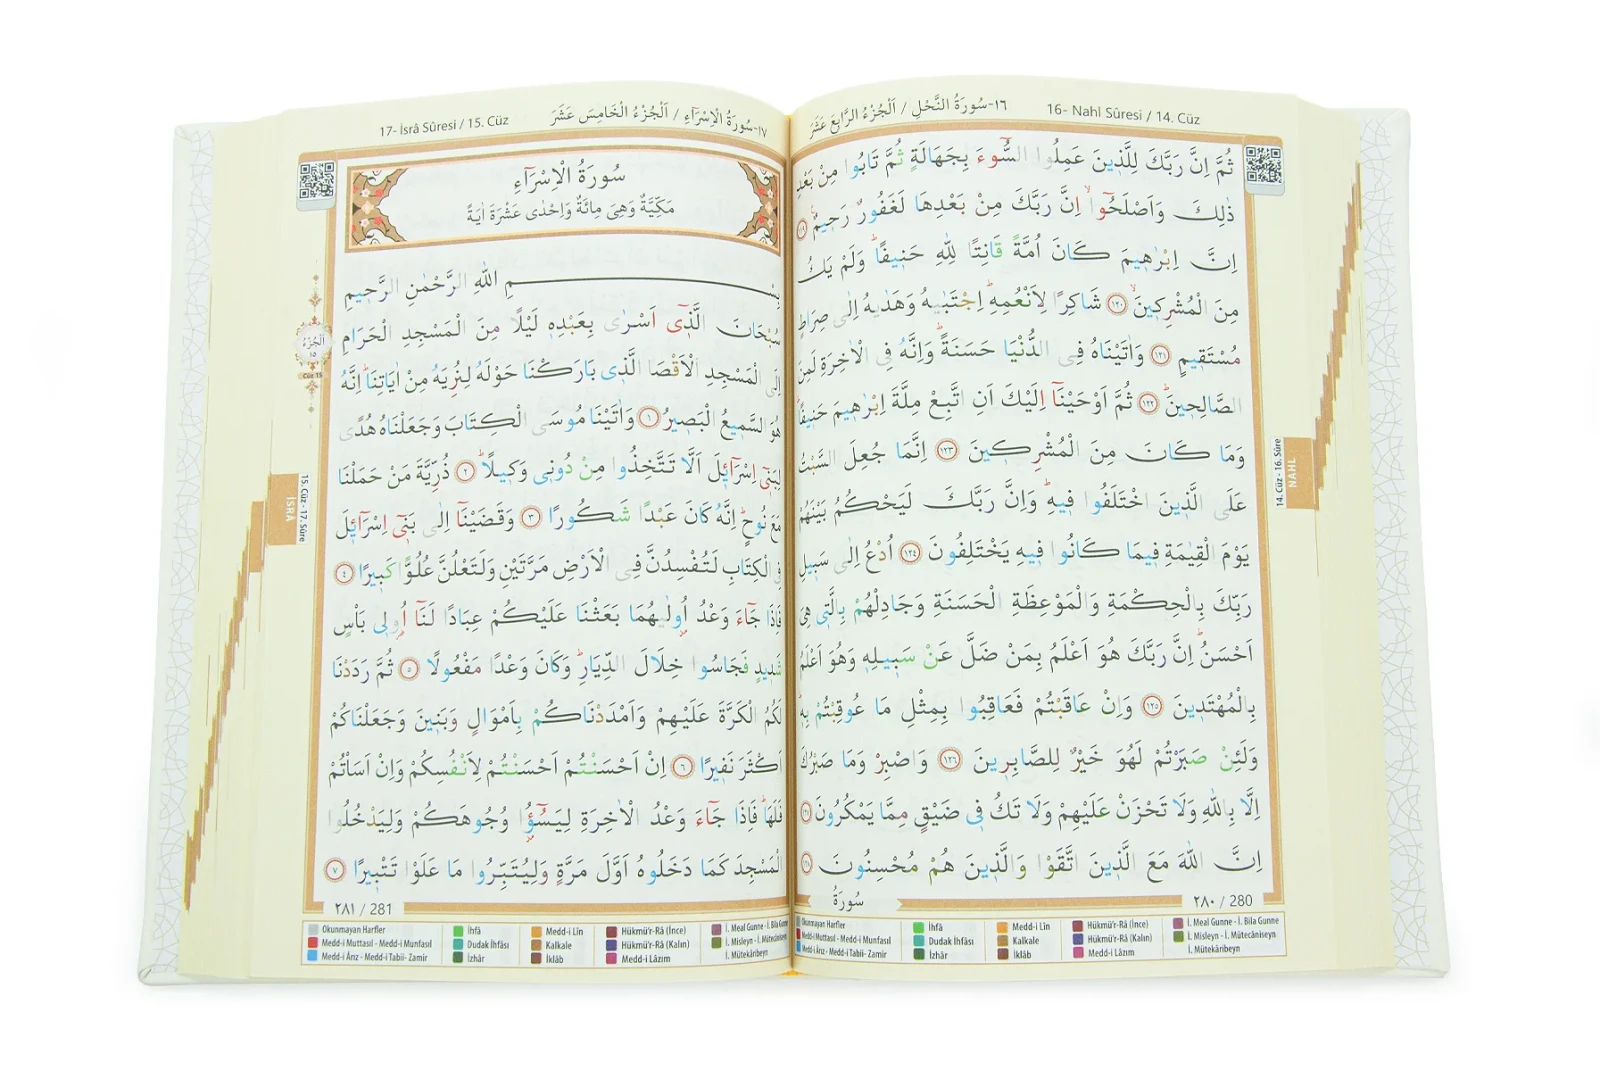 16- Nahl Sûresi / 14. Cüz
١٦-سُورَةُ النَّحْلِ / اَلْجُزْءُ الرَّابِعَ عَشَرَ
ثُمَّ اِنَّ رَبَّكَ لِلَّذ۪ينَ عَمِلُوا السُّٓوءَ بِجَهَالَةٍ ثُمَّ تَابُوا مِنْ بَعْدِ
ذٰلِكَ وَاَصْلَحُٓوا اِنَّ رَبَّكَ مِنْ بَعْدِهَا لَغَفُورٌ رَح۪يمٌ ﴿١١٩﴾
اِنَّ اِبْرٰه۪يمَ كَانَ اُمَّةً قَانِتًا لِلّٰهِ حَن۪يفًا وَلَمْ يَكُ
مِنَ الْمُشْرِك۪ينَ ﴿١٢٠﴾ شَاكِرًا لِاَنْعُمِهِ اِجْتَبٰيهُ وَهَدٰيهُ اِلٰى صِرَاطٍ
مُسْتَق۪يمٍ ﴿١٢١﴾ وَاٰتَيْنَاهُ فِي الدُّنْيَا حَسَنَةً وَاِنَّهُ فِي الْاٰخِرَةِ لَمِنَ
الصَّالِح۪ينَ ﴿١٢٢﴾ ثُمَّ اَوْحَيْنَٓا اِلَيْكَ اَنِ اتَّبِعْ مِلَّةَ اِبْرٰه۪يمَ حَن۪يفًا
وَمَا كَانَ مِنَ الْمُشْرِك۪ينَ ﴿١٢٣﴾ اِنَّمَا جُعِلَ السَّبْتُ
عَلَى الَّذ۪ينَ اخْتَلَفُوا ف۪يهِ وَاِنَّ رَبَّكَ لَيَحْكُمُ بَيْنَهُمْ
يَوْمَ الْقِيٰمَةِ ف۪يمَا كَانُوا ف۪يهِ يَخْتَلِفُونَ ﴿١٢٤﴾ اُدْعُ اِلٰى سَب۪يلِ
رَبِّكَ بِالْحِكْمَةِ وَالْمَوْعِظَةِ الْحَسَنَةِ وَجَادِلْهُمْ بِالَّت۪ي هِيَ
اَحْسَنُ اِنَّ رَبَّكَ هُوَ اَعْلَمُ بِمَنْ ضَلَّ عَنْ سَب۪يلِه۪ وَهُوَ اَعْلَمُ
بِالْمُهْتَد۪ينَ ﴿١٢٥﴾ وَاِنْ عَاقَبْتُمْ فَعَاقِبُوا بِمِثْلِ مَا عُوقِبْتُمْ بِه۪
وَلَئِنْ صَبَرْتُمْ لَهُوَ خَيْرٌ لِلصَّابِر۪ينَ ﴿١٢٦﴾ وَاصْبِرْ وَمَا صَبْرُكَ
اِلَّا بِاللّٰهِ وَلَا تَحْزَنْ عَلَيْهِمْ وَلَا تَكُ ف۪ي ضَيْقٍ مِمَّا يَمْكُرُونَ ﴿١٢٧﴾
اِنَّ اللّٰهَ مَعَ الَّذ۪ينَ اتَّقَوْا وَالَّذ۪ينَ هُمْ مُحْسِنُونَ ﴿١٢٨﴾
٢٨٠ / 280
سُورَةُ
14. Cüz - 16. Sûre
NAHL
Okunmayan Harfler
Medd-i Muttasıl - Medd-i Munfasıl
Medd-i Ârız - Medd-i Tabii- Zamir
İhfâ
Dudak İhfâsı
İzhâr
Medd-i Lîn
Kalkale
İklâb
Hükmü'r-Râ (İnce)
Hükmü'r-Râ (Kalın)
Medd-i Lâzım
İ. Meal Gunne - İ. Bila Gunne
İ. Misleyn - İ. Mütecâniseyn
İ. Mütekâribeyn
17- İsrâ Sûresi / 15. Cüz
١٧-سُورَةُ الْاِسْرَٓاءِ / اَلْجُزْءُ الْخَامِسَ عَشَرَ
سُورَةُ الْاِسْرَٓاءِ
مَكِّيَّةٌ وَهِيَ مِائَةٌ وَاِحْدٰى عَشْرَةَ اٰيَةً
بِسْمِ اللّٰهِ الرَّحْمٰنِ الرَّح۪يمِ
سُبْحَانَ الَّذ۪ٓي اَسْرٰى بِعَبْدِه۪ لَيْلًا مِنَ الْمَسْجِدِ الْحَرَامِ
اِلَى الْمَسْجِدِ الْاَقْصَا الَّذ۪ي بَارَكْنَا حَوْلَهُ لِنُرِيَهُ مِنْ اٰيَاتِنَا اِنَّهُ
هُوَ السَّم۪يعُ الْبَص۪يرُ ﴿١﴾ وَاٰتَيْنَا مُوسَى الْكِتَابَ وَجَعَلْنَاهُ هُدًى
لِبَن۪ٓي اِسْرَٓائ۪لَ اَلَّا تَتَّخِذُوا مِنْ دُون۪ي وَك۪يلًا ﴿٢﴾ ذُرِّيَّةَ مَنْ حَمَلْنَا
مَعَ نُوحٍ اِنَّهُ كَانَ عَبْدًا شَكُورًا ﴿٣﴾ وَقَضَيْنَٓا اِلٰى بَن۪ٓي اِسْرَٓائ۪لَ
فِي الْكِتَابِ لَتُفْسِدُنَّ فِي الْاَرْضِ مَرَّتَيْنِ وَلَتَعْلُنَّ عُلُوًّا كَب۪يرًا ﴿٤﴾
فَاِذَا جَٓاءَ وَعْدُ اُو۫لٰيهُمَا بَعَثْنَا عَلَيْكُمْ عِبَادًا لَنَٓا اُو۬ل۪ي بَأْسٍ
شَد۪يدٍ فَجَاسُوا خِلَالَ الدِّيَارِ وَكَانَ وَعْدًا مَفْعُولًا ﴿٥﴾ ثُمَّ رَدَدْنَا
لَكُمُ الْكَرَّةَ عَلَيْهِمْ وَاَمْدَدْنَاكُمْ بِاَمْوَالٍ وَبَن۪ينَ وَجَعَلْنَاكُمْ
اَكْثَرَ نَف۪يرًا ﴿٦﴾ اِنْ اَحْسَنْتُمْ اَحْسَنْتُمْ لِاَنْفُسِكُمْ وَاِنْ اَسَأْتُمْ
فَلَهَا فَاِذَا جَٓاءَ وَعْدُ الْاٰخِرَةِ لِيَسُٓؤُ۫ا وُجُوهَكُمْ وَلِيَدْخُلُوا
الْمَسْجِدَ كَمَا دَخَلُوهُ اَوَّلَ مَرَّةٍ وَلِيُتَبِّرُوا مَا عَلَوْا تَتْب۪يرًا ﴿٧﴾
٢٨١ / 281
اَلْجُزْءُ
١٥
Cüz 15
15. Cüz - 17. Sûre
İSRÂ
Okunmayan Harfler
Medd-i Muttasıl - Medd-i Munfasıl
Medd-i Ârız - Medd-i Tabii- Zamir
İhfâ
Dudak İhfâsı
İzhâr
Medd-i Lîn
Kalkale
İklâb
Hükmü'r-Râ (İnce)
Hükmü'r-Râ (Kalın)
Medd-i Lâzım
İ. Meal Gunne - İ. Bila Gunne
İ. Misleyn - İ. Mütecâniseyn
İ. Mütekâribeyn